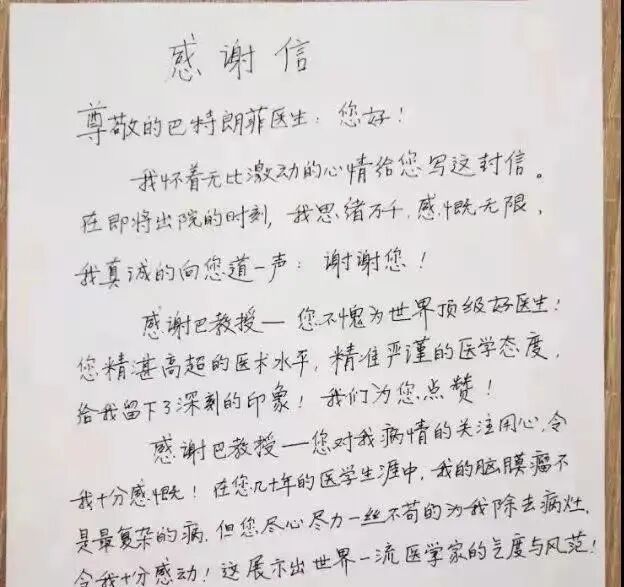 感谢信
尊敬的巴特朗菲医生：您好！
我怀着无比激动的心情给您写这封信。
在即将出院的时刻，我思绪万千，感慨无限，
我真诚的向您道一声：谢谢您！
感谢巴教授—您不愧为世界顶级好医生！
您精湛高超的医术水平，精准严谨的医学态度，
给我留下了深刻的印象！我们为您点赞！
感谢巴教授—您对我病情的关注用心，令
我十分感慨！在您几十年的医学生涯中，我的脑膜瘤不
是最复杂的病，但您尽心尽力一丝不苟的为我除去病灶，
令我十分感动！这展示出世界一流医学家的气度与风范！